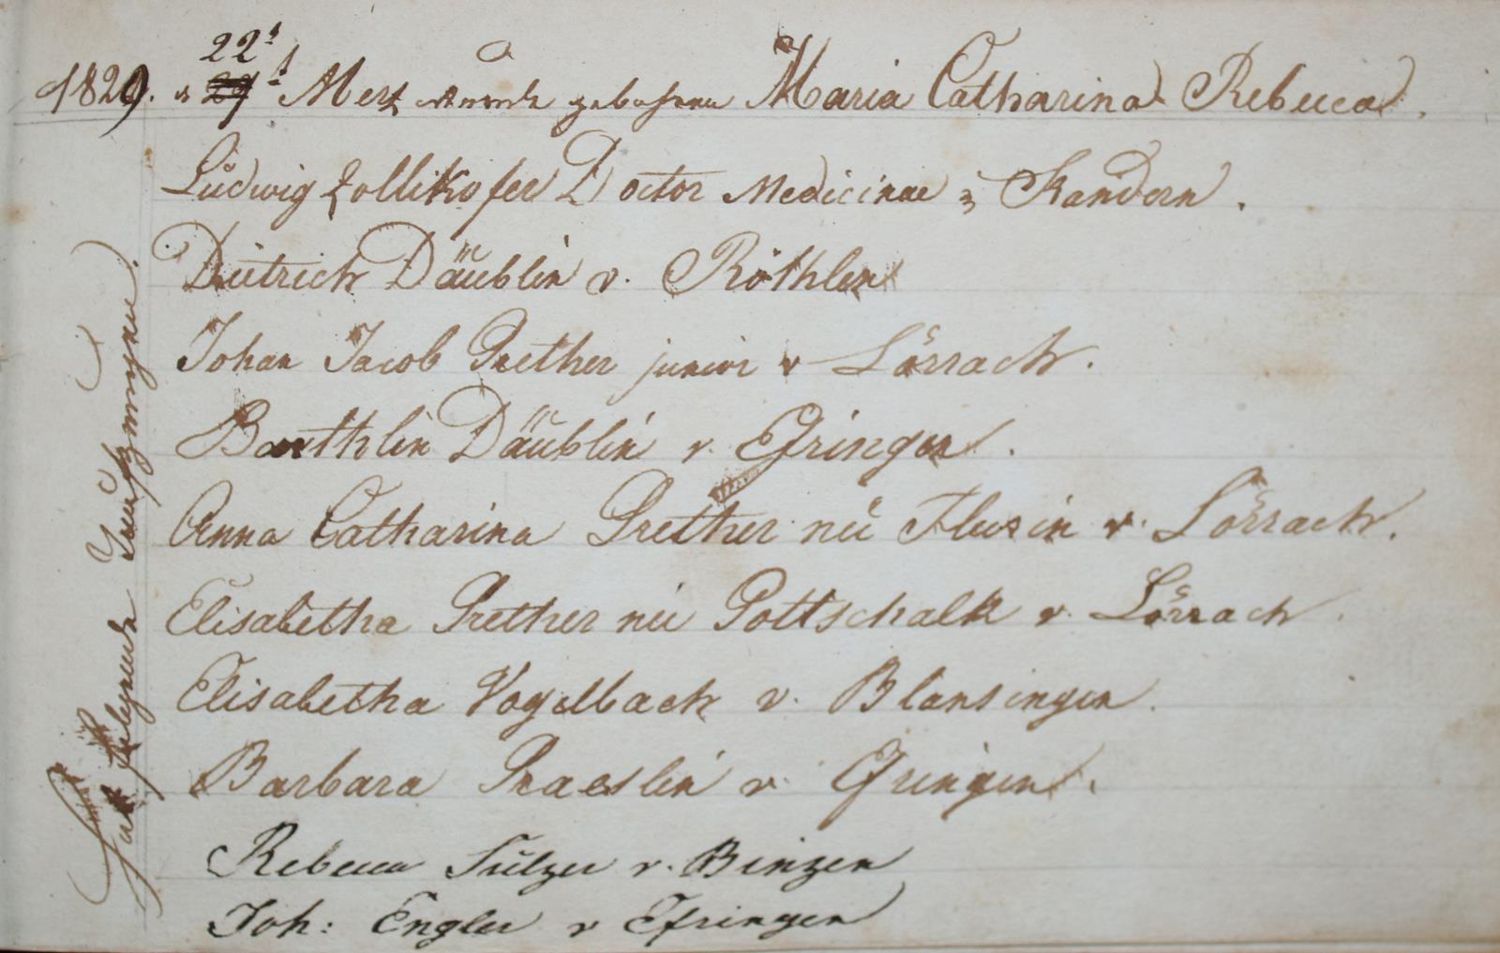 22t
1829. d 29t Merz wurde gebohren Maria Catharina Rebecca.
Ludwig Zollikofer Doctor Medicinae z Kandern.
Dietrich Däublin v. Röthlen
Johan Jacob Grether junior v Lörrach.
Barthlin Däublin v. Efringen.
Anna Catharina Grether neé Flusin v. Lörrach.
Elisabetha Grether neé Gottschalk v. Lörrach.
Elisabetha Vogelbach v. Blansingen.
Barbara Graeslin v. Efringen.
Rebecca Sulzer v. Binzen
Joh: Engler v Efringen
hat folgende Taufzeugen.